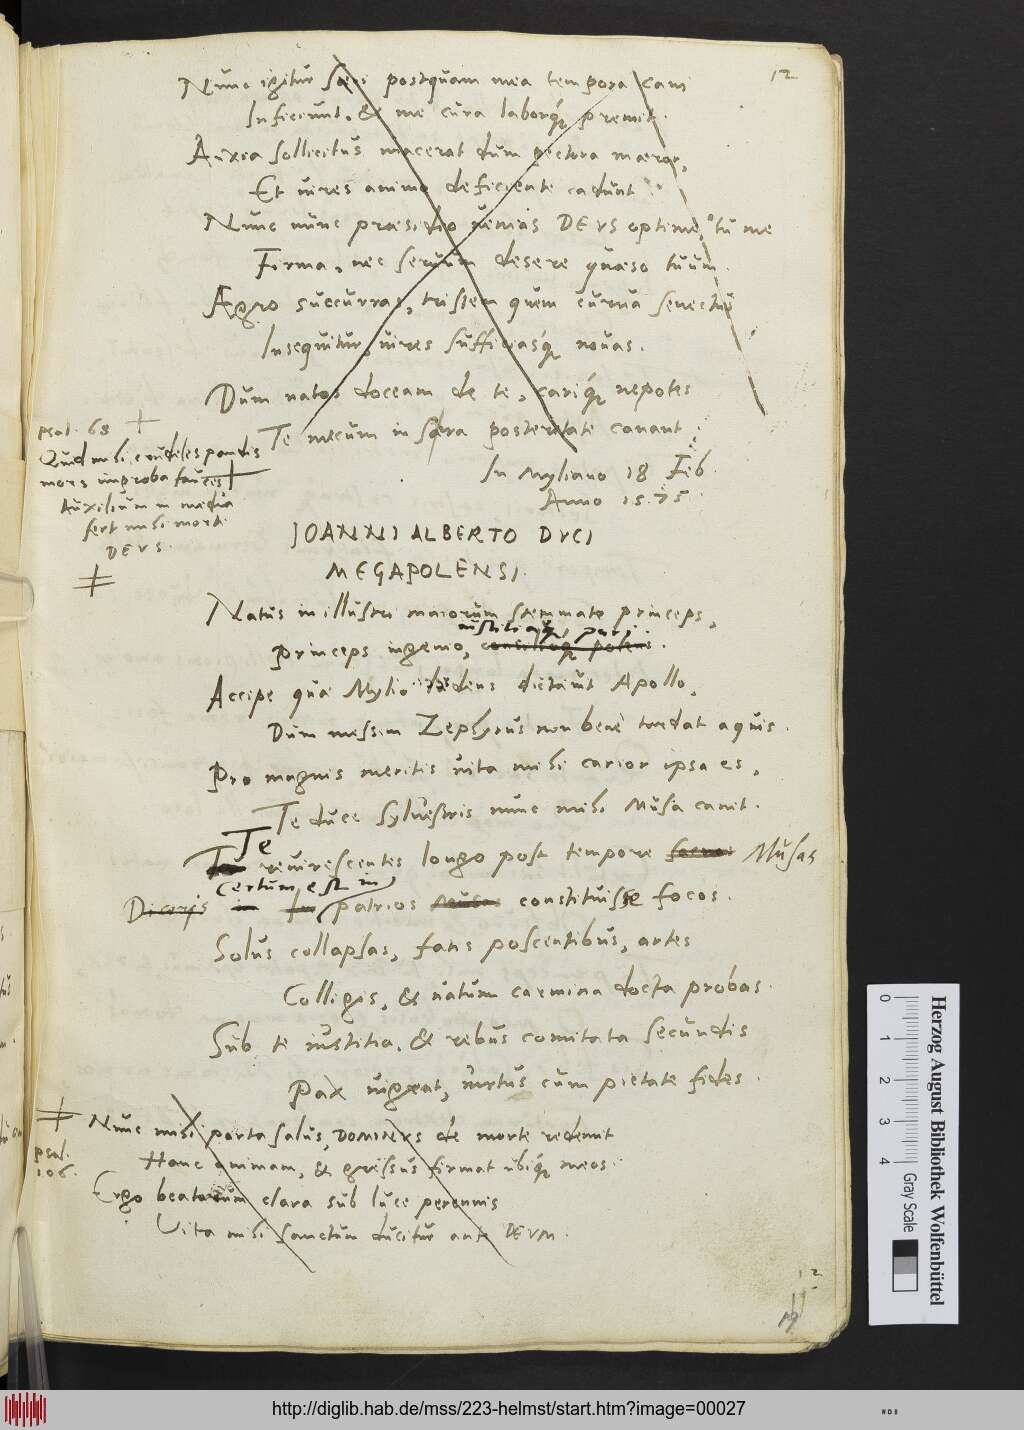 12
Nunc igitur postquam mea tempora cani
Inficiunt, & me cura laborq́; premit.
Anxia sollicitus macerat dum pectora mæror,
Et uires animo deficiente cadunt:
Nunc nunc præsidio uenias DEVS optime, tu me
Firma, nec seruum desere quæso tuum.
Ægro succurras, tristem quem curua senectus
Insequitur, uires sufficiasq́; nouas.
Dum natos doceam de te, cariq́; nepotes
Te mecum in sera posteritate canant.
In Myliano 18 Feb.
Anno 1575.
psal. 68
Quid mihi crudeles pandis
mors improba fauces
Auxilium in media
fert mihi morte
DEVS.
JOANNI ALBERTO DVCI
MEGAPOLENSI.
Natus in illustri maiorum stemmate princeps,
iustitiaq́;
Princeps ingenio, consilioq́; potens.
Accipe quæ Mylio dictauit Apollo,
Dum messem Zephyrus non bene tundat aquis.
Pro magnis meritis uita mihi carior ipsa es,
Te duce syluestris nunc mihi Musa canit.
Te
reuirescentes longo post tempore Musas
certum est in
Diceris in patrios Musas constituisse focos.
Solus collapsas, fatis poscentibus, artes
Colligis, & uatum carmina docta probas.
Sub te iustitia, & rebus comitata secundis
Pax uigeat, uirtus cum pietate fides.
psal.
106.
Nunc mihi parta salus, DOMINVS de morte redemit
Hanc animam, & gressus firmat ubiq́; meos.
Ergo beatorum clara sub luce perennis
Vita mihi sanctum ducitur ante DEVM.
12
Herzog August Bibliothek Wolfenbüttel
0 1 2 3 4
Gray Scale
http://diglib.hab.de/mss/223-helmst/start.htm?image=00027